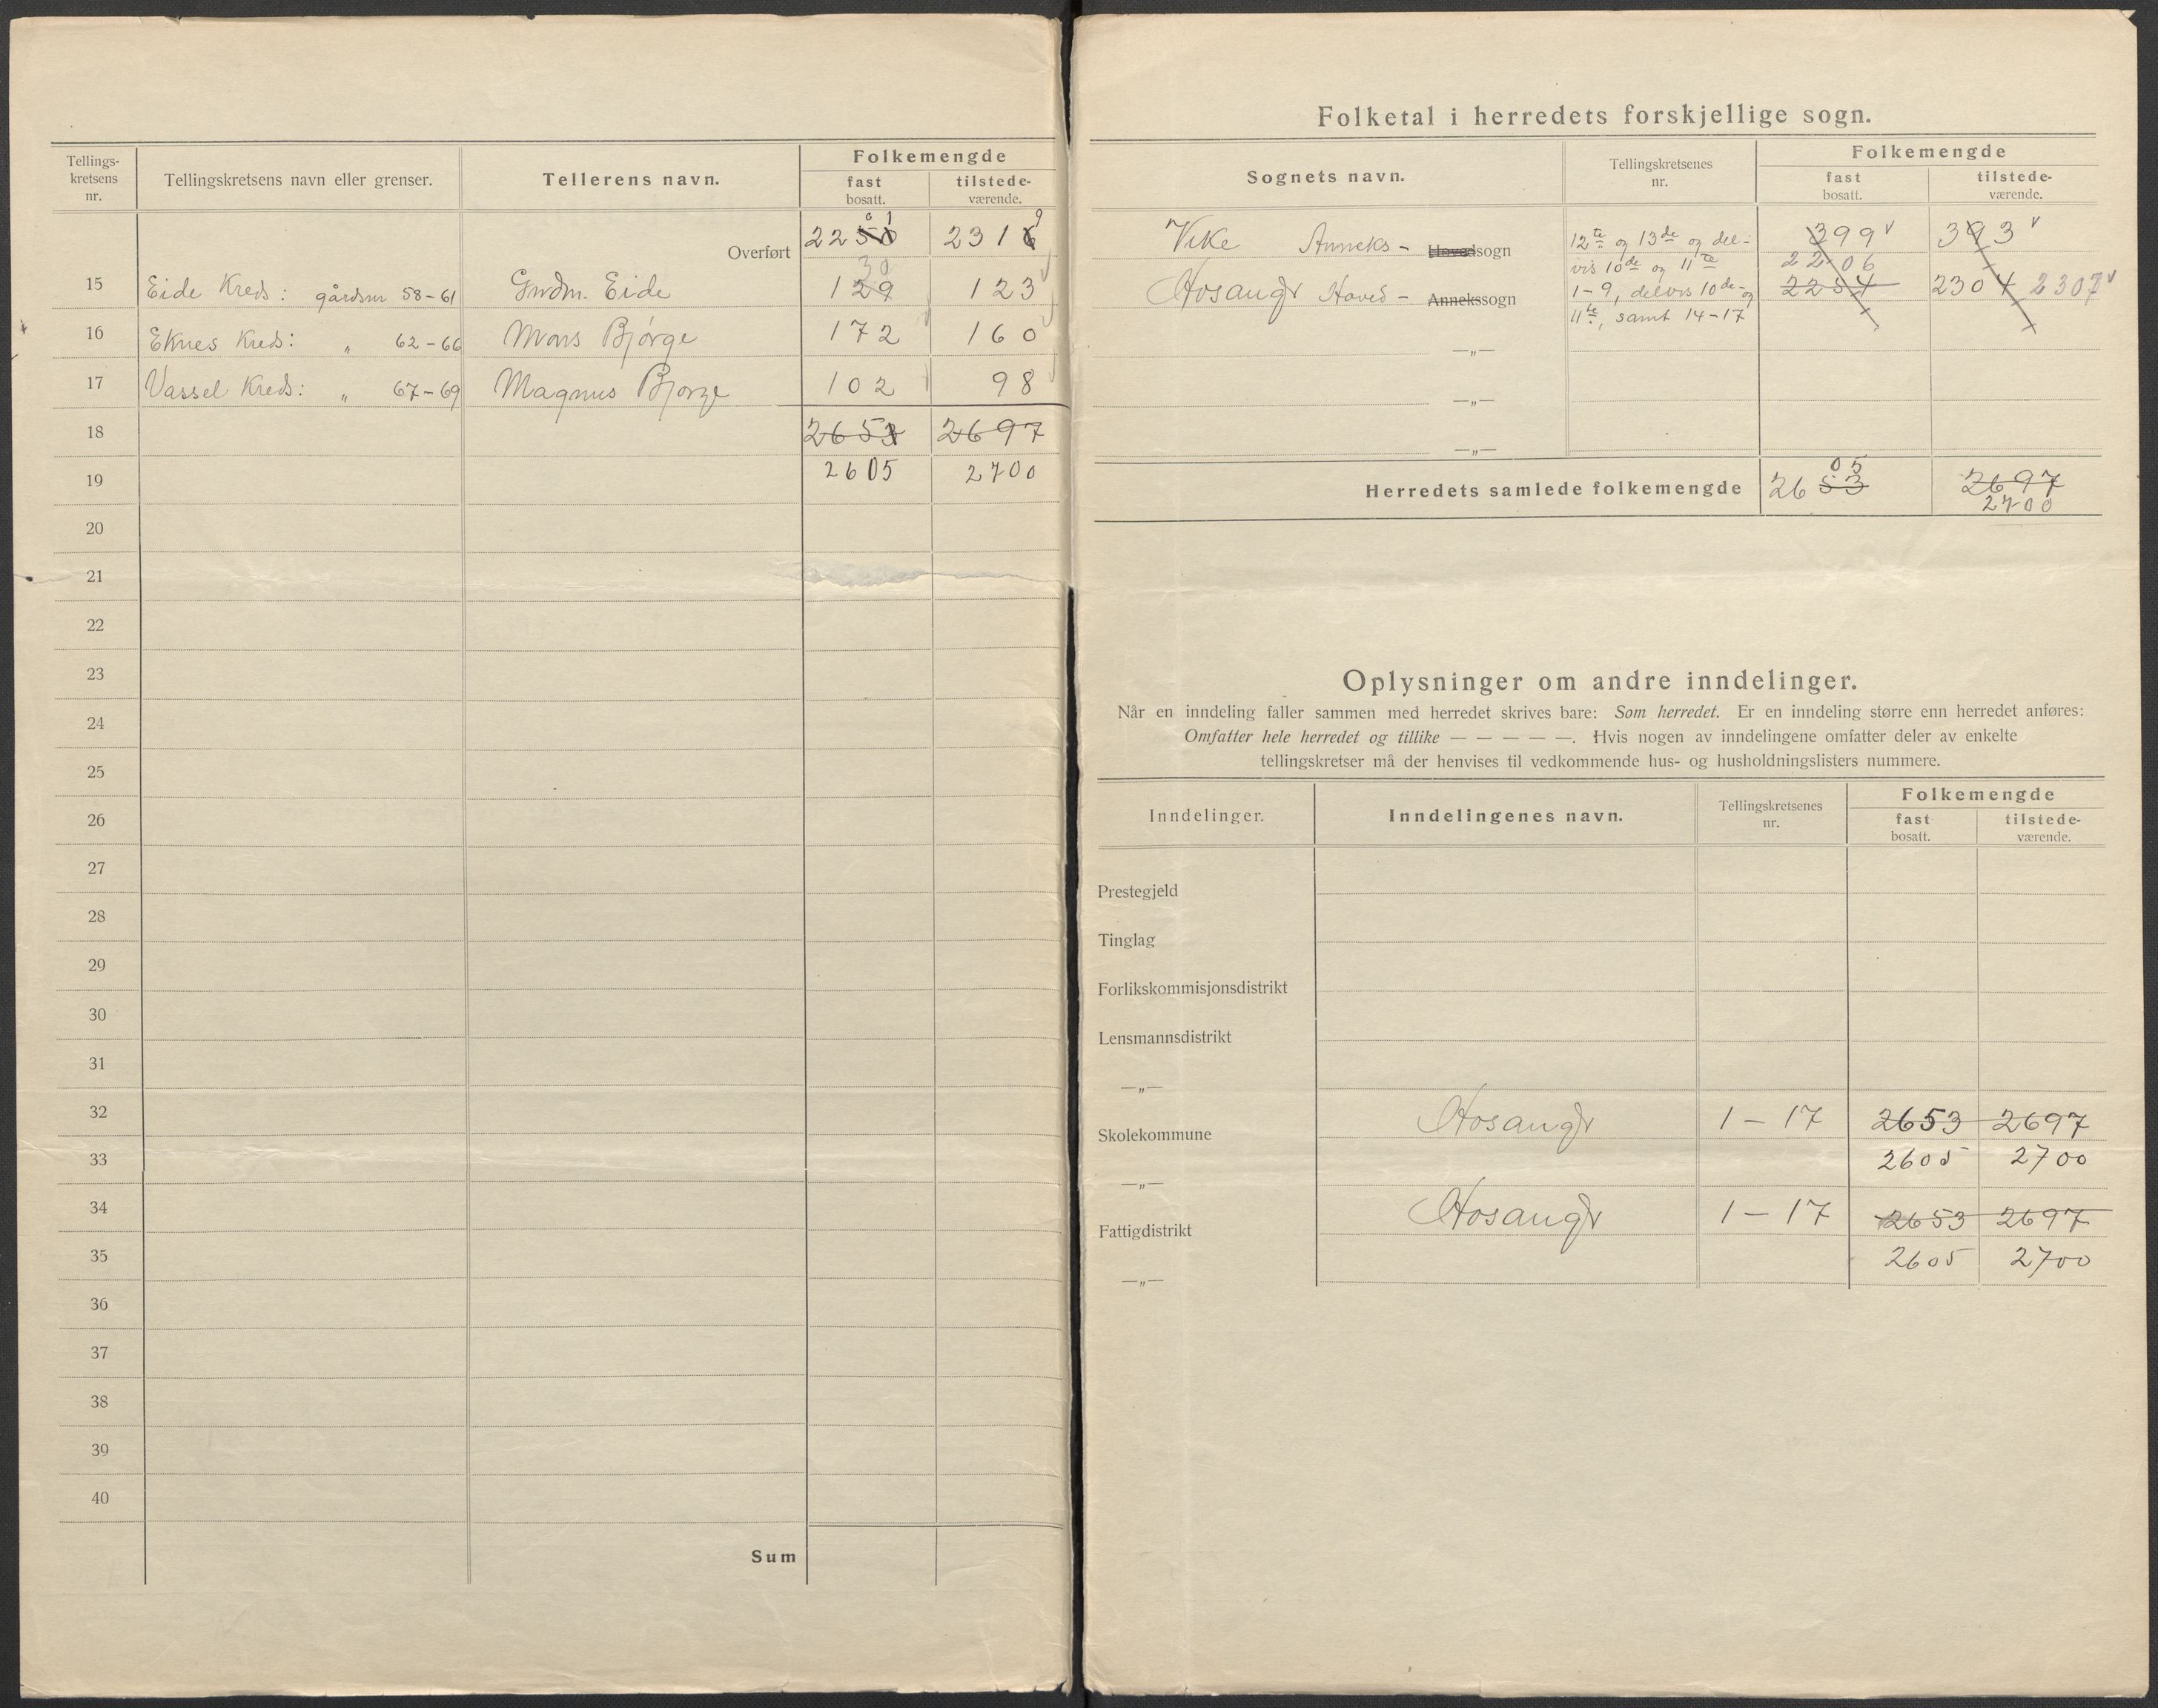 Tellings-
kretsens
nr.
Tellingskretsens navn eller grenser.
Tellerens navn.
Folkemengde
fast
bosatt.
tilstede-
værende.
0 1 9
Overført 2250 2316
30
15 Eide Kreds: gårdsnr 58-61 Gudm. Eide 129 123
16 Eknes Kreds: „ 62-66 Mons Bjørge 172 160
17 Vassel Kreds: „ 67-69 Magnus Bjorge 102 98
18 2653 2697
19 2605 2700
20
21
22
23
24
25
26
27
28
29
30
31
32
33
34
35
36
37
38
39
40
Sum
Folketal i herredets forskjellige sogn.
Sognets navn.
Tellingskretsenes
nr.
Folkemengde
fast
bosatt.
tilstede-
værende.
Vike Anneks- Hovedsogn 12te og 13de og del- 399 393
vis 10de og 11te 2206
Hosangr Hoved- Annekssogn 1-9, delvis 10de- og 2254 2304 2307
11te, samt 14-17
—„—
—„—
—„—
05
Herredets samlede folkemengde 2653 2697
2700
Oplysninger om andre inndelinger.
Når en inndeling faller sammen med herredet skrives bare: Som herredet. Er en inndeling større enn herredet anføres:
Omfatter hele herredet og tillike — — — — —. Hvis nogen av inndelingene omfatter deler av enkelte
tellingskretser må der henvises til vedkommende hus- og husholdningslisters nummere.
Inndelinger.
Inndelingenes navn.
Tellingskretsenes
nr.
Folkemengde
fast
bosatt.
tilstede-
værende.
Prestegjeld
Tinglag
Forlikskommisjonsdistrikt
Lensmannsdistrikt
—„—
Skolekommune Hosangr 1-17 2653 2697
—„— 2605 2700
Fattigdistrikt Hosangr 1-17 2653 2697
—„— 2605 2700